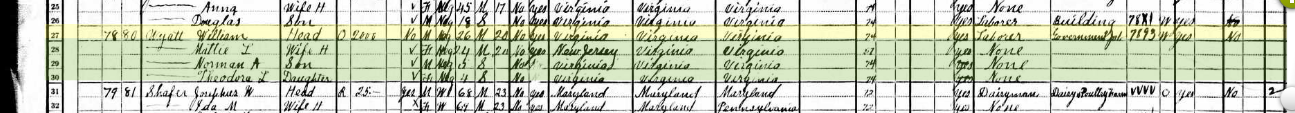 25 Anna Wife H V F Neg 45 M 17 No yes Virginia Virginia Virginia 74 yes None
26 Douglas Son V M Neg 18 S No yes Virginia Virginia Virginia 74 yes Laborer Building 78X1 W yes
27 78 80 William Head O 2000 No M Neg 26 M No yes Virginia Virginia Virginia 74 yes Laborer Government W yes No
28 Mattie L Wife H V F Neg 24 M No yes New Jersey Virginia Virginia yes None
29 Norman A Son V M Neg 5 S No Virginia Virginia Virginia 74 None
30 Theodora L Daughter V F Neg 4 S No Virginia Virginia Virginia 74 None
31 79 81 Shafer Josephus W Head R 25 yes M W 68 M 23 No yes Maryland Maryland Maryland 72 yes Dairyman Dairy & Poultry Farm VVVV O yes No 2
32 Ida M Wife H X F W 67 M 23 No yes Maryland Maryland Pennsylvania 72 yes None